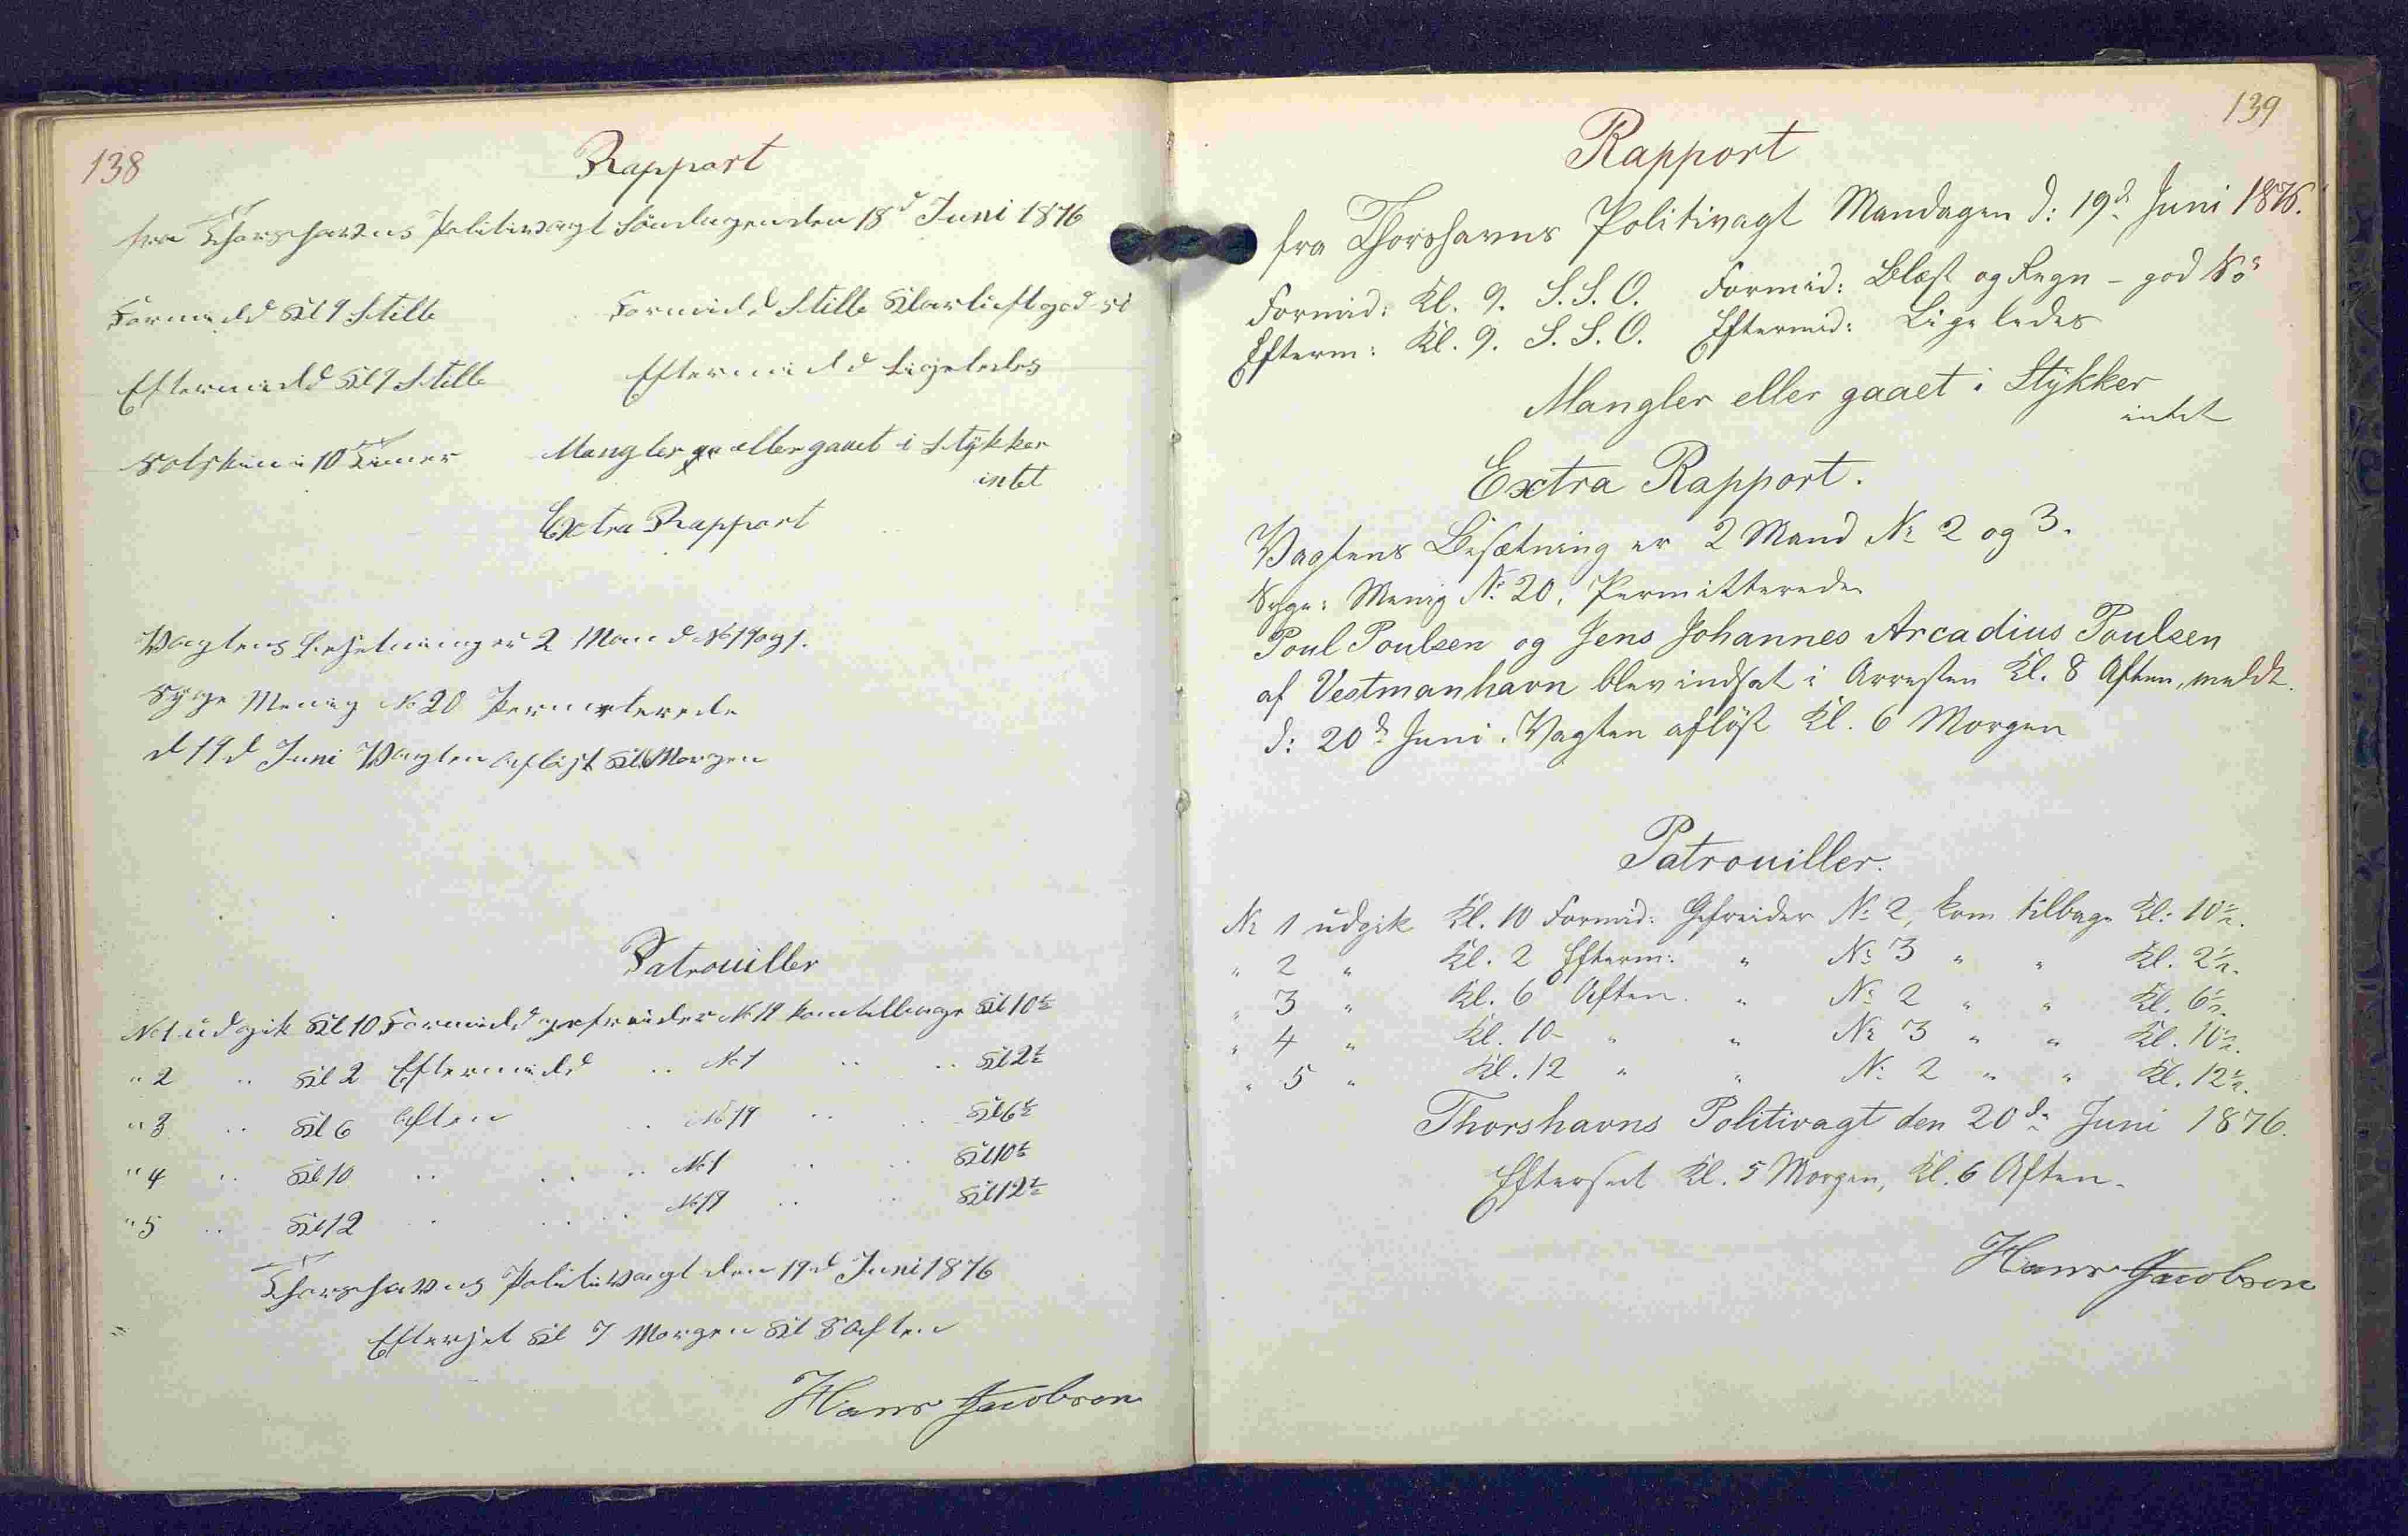 138
Rapport
fra Thorshavns Politivagt Söndagen den 18d Juni 1876
Formidd Kl 9 Stille Formidd Stille Klarluft god Sö
Eftermidd Kl 9 Stille Eftermidd Ligeledes
Solskin i 10 Timer Mangler eller gaaet i Stykker
intet
Extra Rapport
Vagtens Besetning er 2 Mand No 19 og 1.
Syge Menig No 20 Permiterede
d 19d Juni Vagten aflöst Kl 6 Morgen
Patrouiller
No 1 udgik Kl 10 Formidd gefreider No 19 kom tilbage Kl 10½
" 2 " Kl 2 Eftermidd " No 1 " " Kl 2½
" 3 " Kl 6 Aften " No 19 " " Kl 6½
" 4 " Kl 10 " " No 1 " " Kl 10½
" 5 " Kl 12 " " No 19 " " Kl 12½
Thorshavns Politivagt den 19d Juni 1876
Efterset Kl 7 Morgen Kl 8 Aften
Hans Jacobsen
139
Rapport
fra Thorshavns Politivagt Mandagen d: 19d Juni 1876.
Formid: Kl. 9. S.S.O. Formid: Blæst og Regn - god Sö
Efterm: Kl. 9. S.S.O. Eftermid: Ligeledes
Mangler eller gaaet i Stykker
intet
Extra Rapport.
Vagtens Besætning er 2 Mand No 2 og 3.
Syge: Menig No 20, Permitterede
Poul Poulsen og Jens Johannes Arcadius Poulsen
af Vestmanhavn blev indsat i Arresten Kl. 8 Aften, meldt.
d: 20d Juni. Vagten aflöst Kl. 6 Morgen
Patrouiller.
No 1 udgik Kl. 10 Formid: Gefreider No 2, kom tilbage Kl: 10½.
" 2 " Kl. 2 Efterm: " No 3 " " Kl. 2½.
" 3 " Kl. 6 Aften. " No 2 " " Kl. 6½.
" 4 " Kl. 10 " " No 3 " " Kl. 10½.
" 5 " Kl. 12 " " No 2 " " Kl. 12½.
Thorshavns Politivagt den 20d. Juni 1876.
Efterset Kl. 5 Morgen, Kl. 6 Aften.
Hans Jacobsen